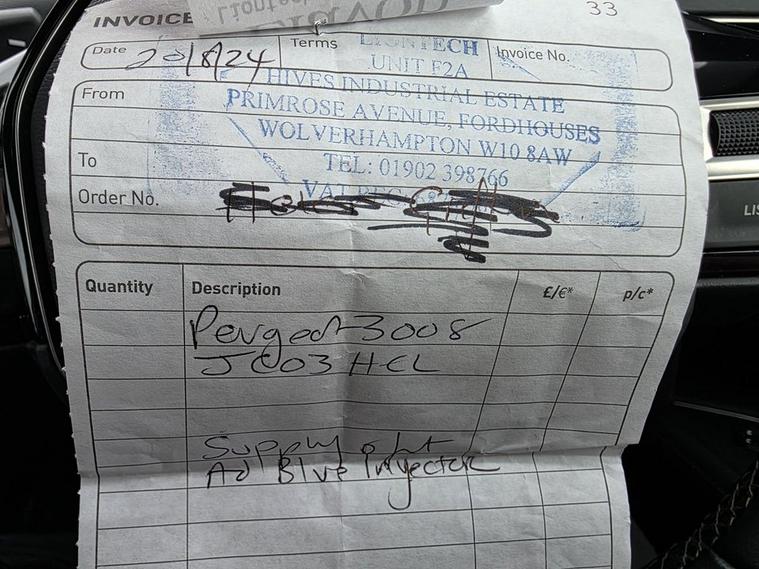 Liontech
INVOICE
33
Date 20/8/24 Terms Invoice No.
LIONTECH
UNIT F2A
HIVES INDUSTRIAL ESTATE
PRIMROSE AVENUE, FORDHOUSES
WOLVERHAMPTON W10 8AW
TEL: 01902 398766
VAT REG
From
To
Order No.
Quantity Description £/€* p/c*
Peugeot 3008
JC03 HCL
Supply & fit
Ad Blue Injector
LIS